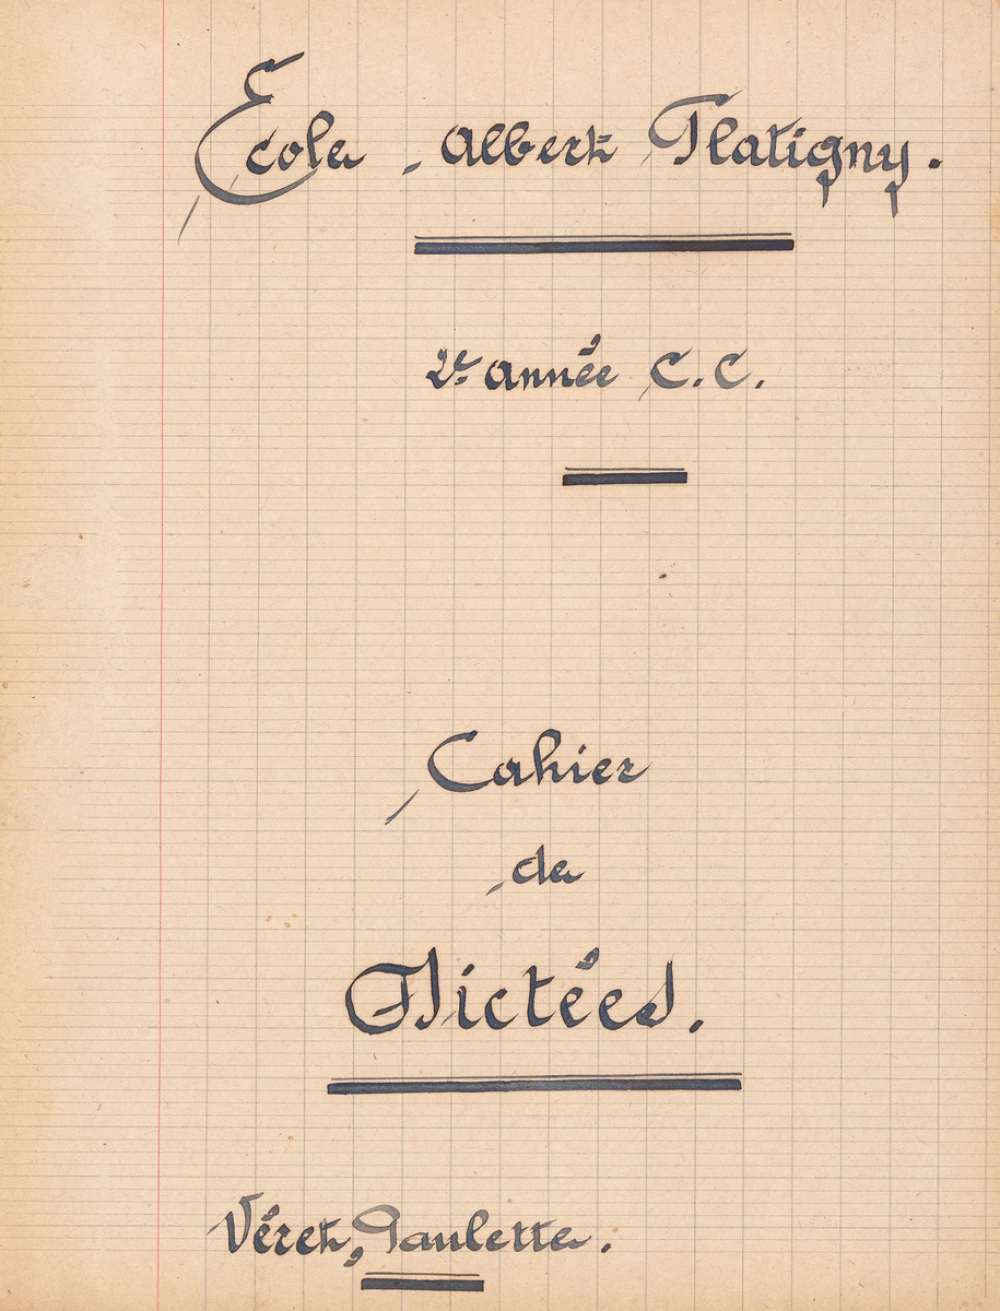 École Albert Glatigny.
2e année C.C.
Cahier
de
Dictées.
Véret, Paulette.